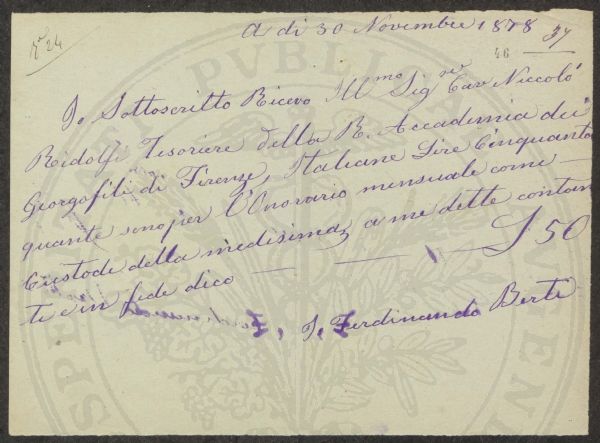 A dì 30 Novembre 1878
37
46
Nº 24
Io Sottoscritto Ricevo Ill.mo Sig.re Cav Niccolò
Ridolfi Tesoriere della R. Accademia dei
Georgofili di Firenze, Italiane Lire Cinquanta
quante sono per l'Onorario mensuale come
Custode della medisima, a me dette contan
ti e in fede dico £ 50
Io Ferdinando Berti
PUBLICA